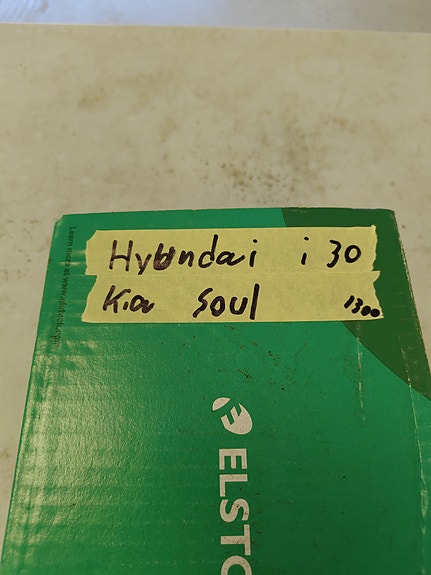 Hyundai i 30
Kia Soul 1300
ELSTO
Learn more at www.